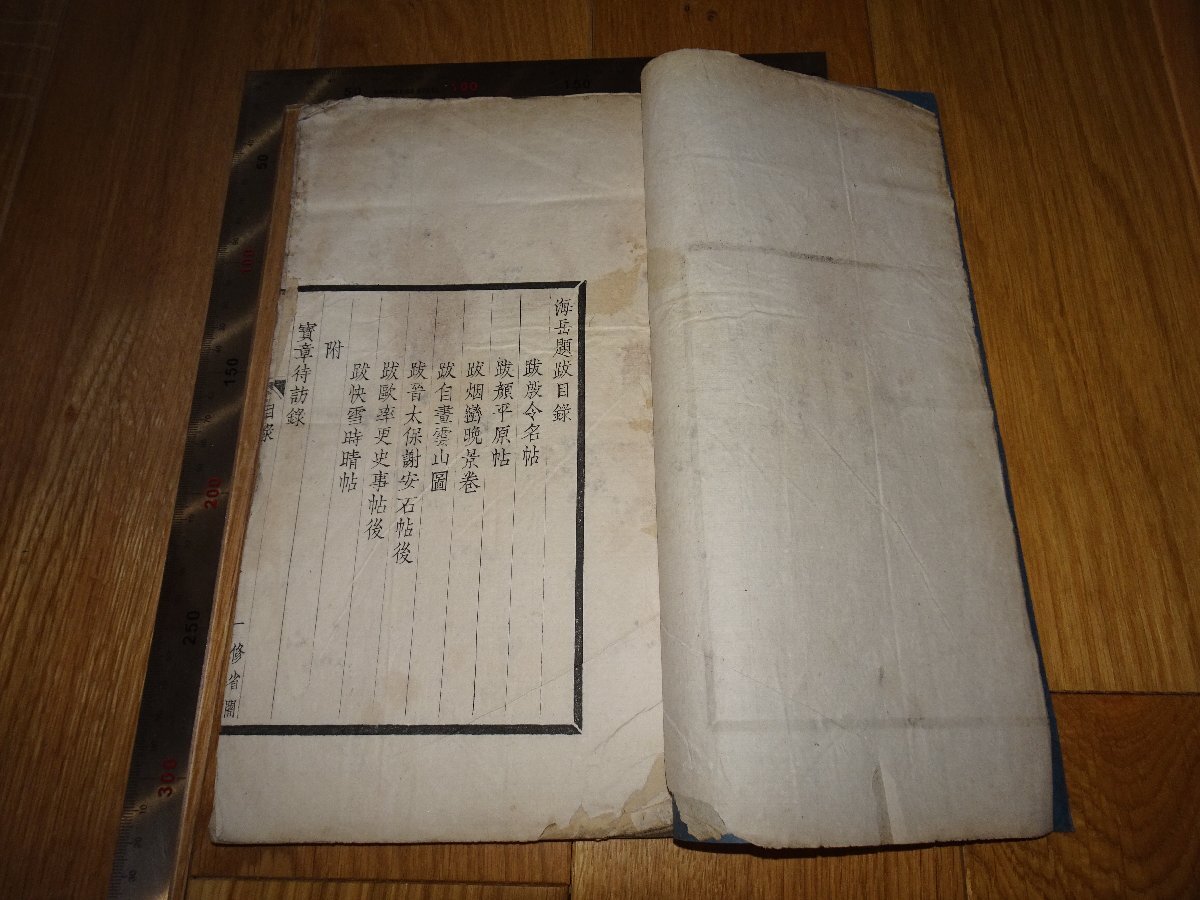 海岳題跋目錄
跋啟令名帖
跋顏平原帖
跋烟巒晚景卷
跋自畫雲山圖
跋晉太保謝安石帖後
跋歐率更史事帖後
跋快雪時晴帖
附
寶章待訪錄
目錄
一 修省閣
50
100
150
50
100
150
200
250
300